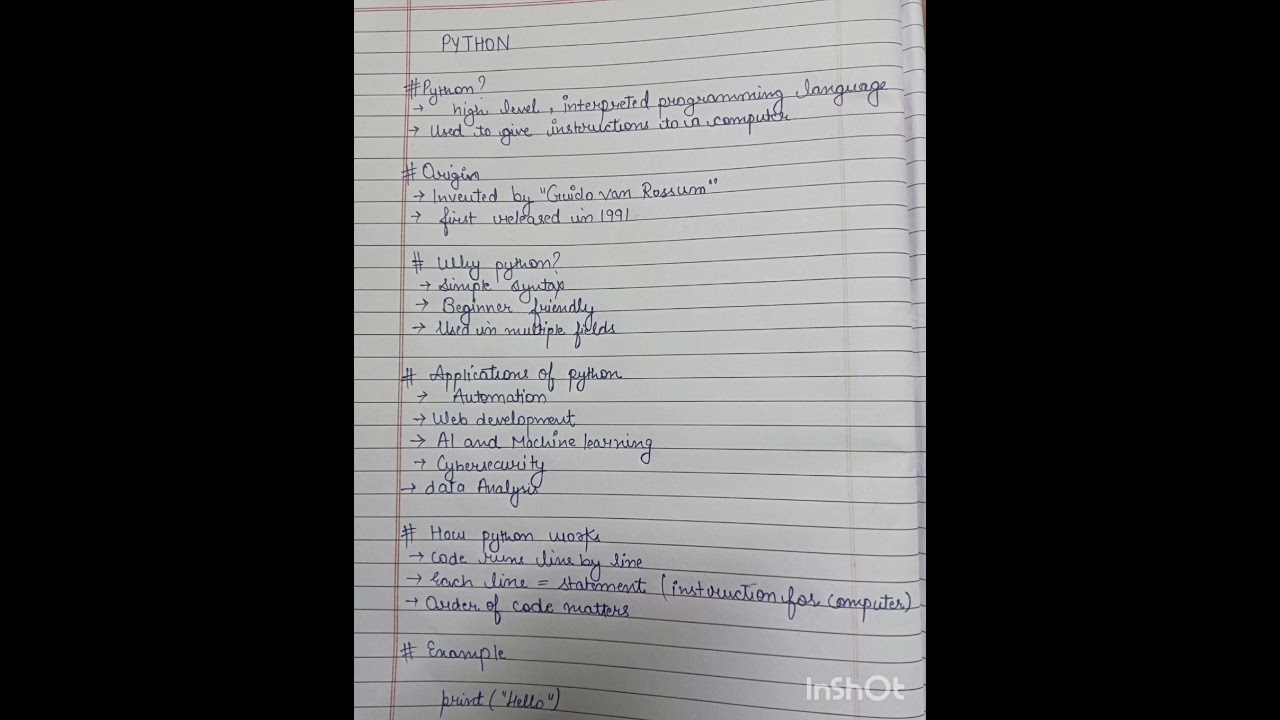 PYTHON
# Python?
→ high level, interpreted programming language
→ Used to give instructions to a computer.
# Origin
→ Invented by "Guido van Rossum"
→ first released in 1991
# Why python?
→ simple syntax
→ Beginner friendly
→ Used in multiple fields
# Applications of python
→ Automation
→ Web development
→ AI and Machine learning
→ Cybersecurity
→ data Analysis
# How python works
→ code runs line by line
→ Each line = statement (instruction for computer)
→ Order of code matters
# Example
print("Hello")
InShOt